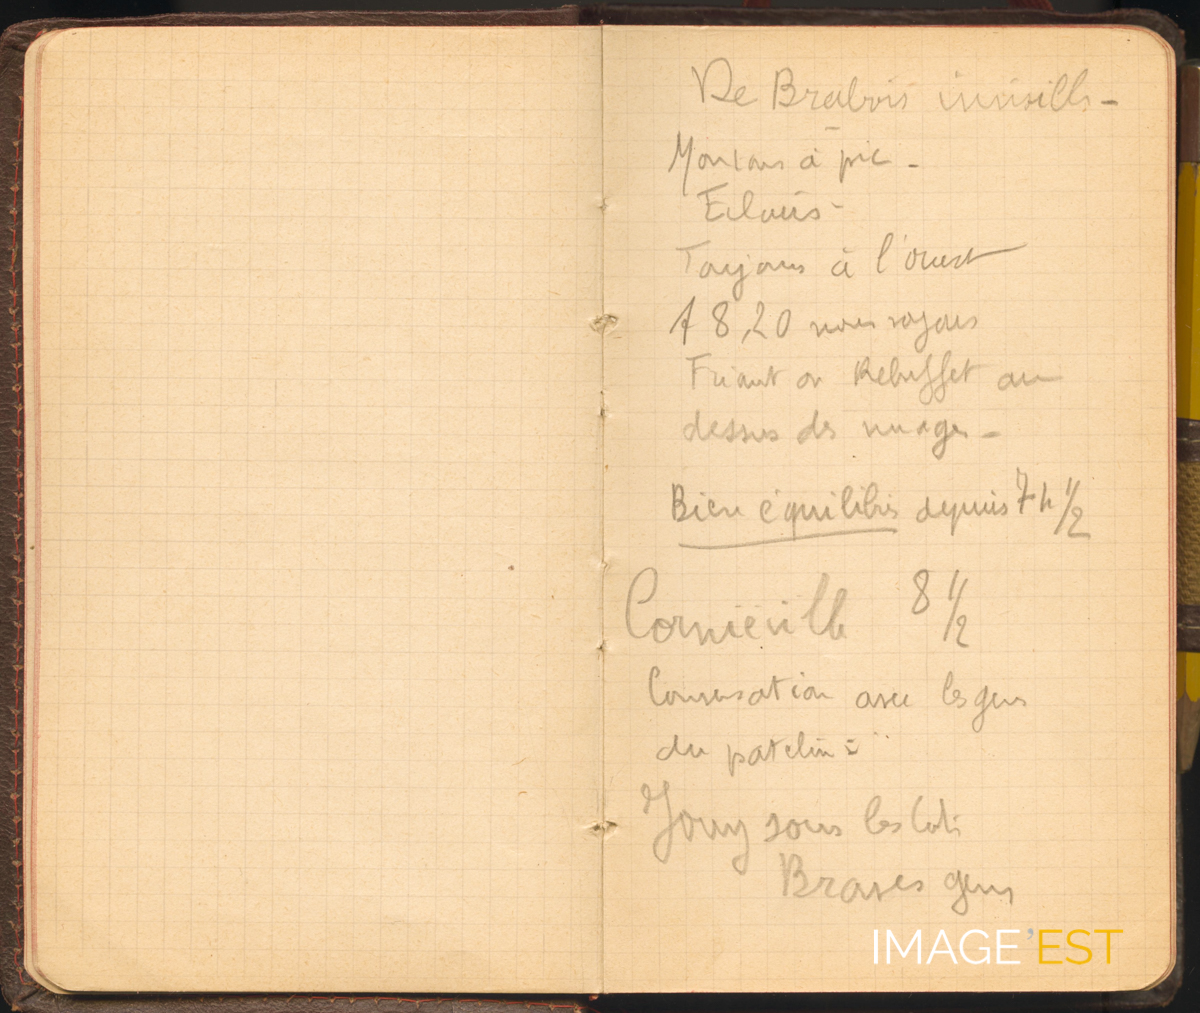 De Brabois invisible -
Montons à pic -
Eclairs -
Toujours à l'ouest
A 8,20 nous voyons
Friant ou Rebuffet au
dessus des nuages -
Bien équilibrés depuis 7 h 1/2
Corniéville 8 1/2
Conversation avec les gens
du patelin
Jouy sous les Cotes
Braves gens
IMAGE'EST